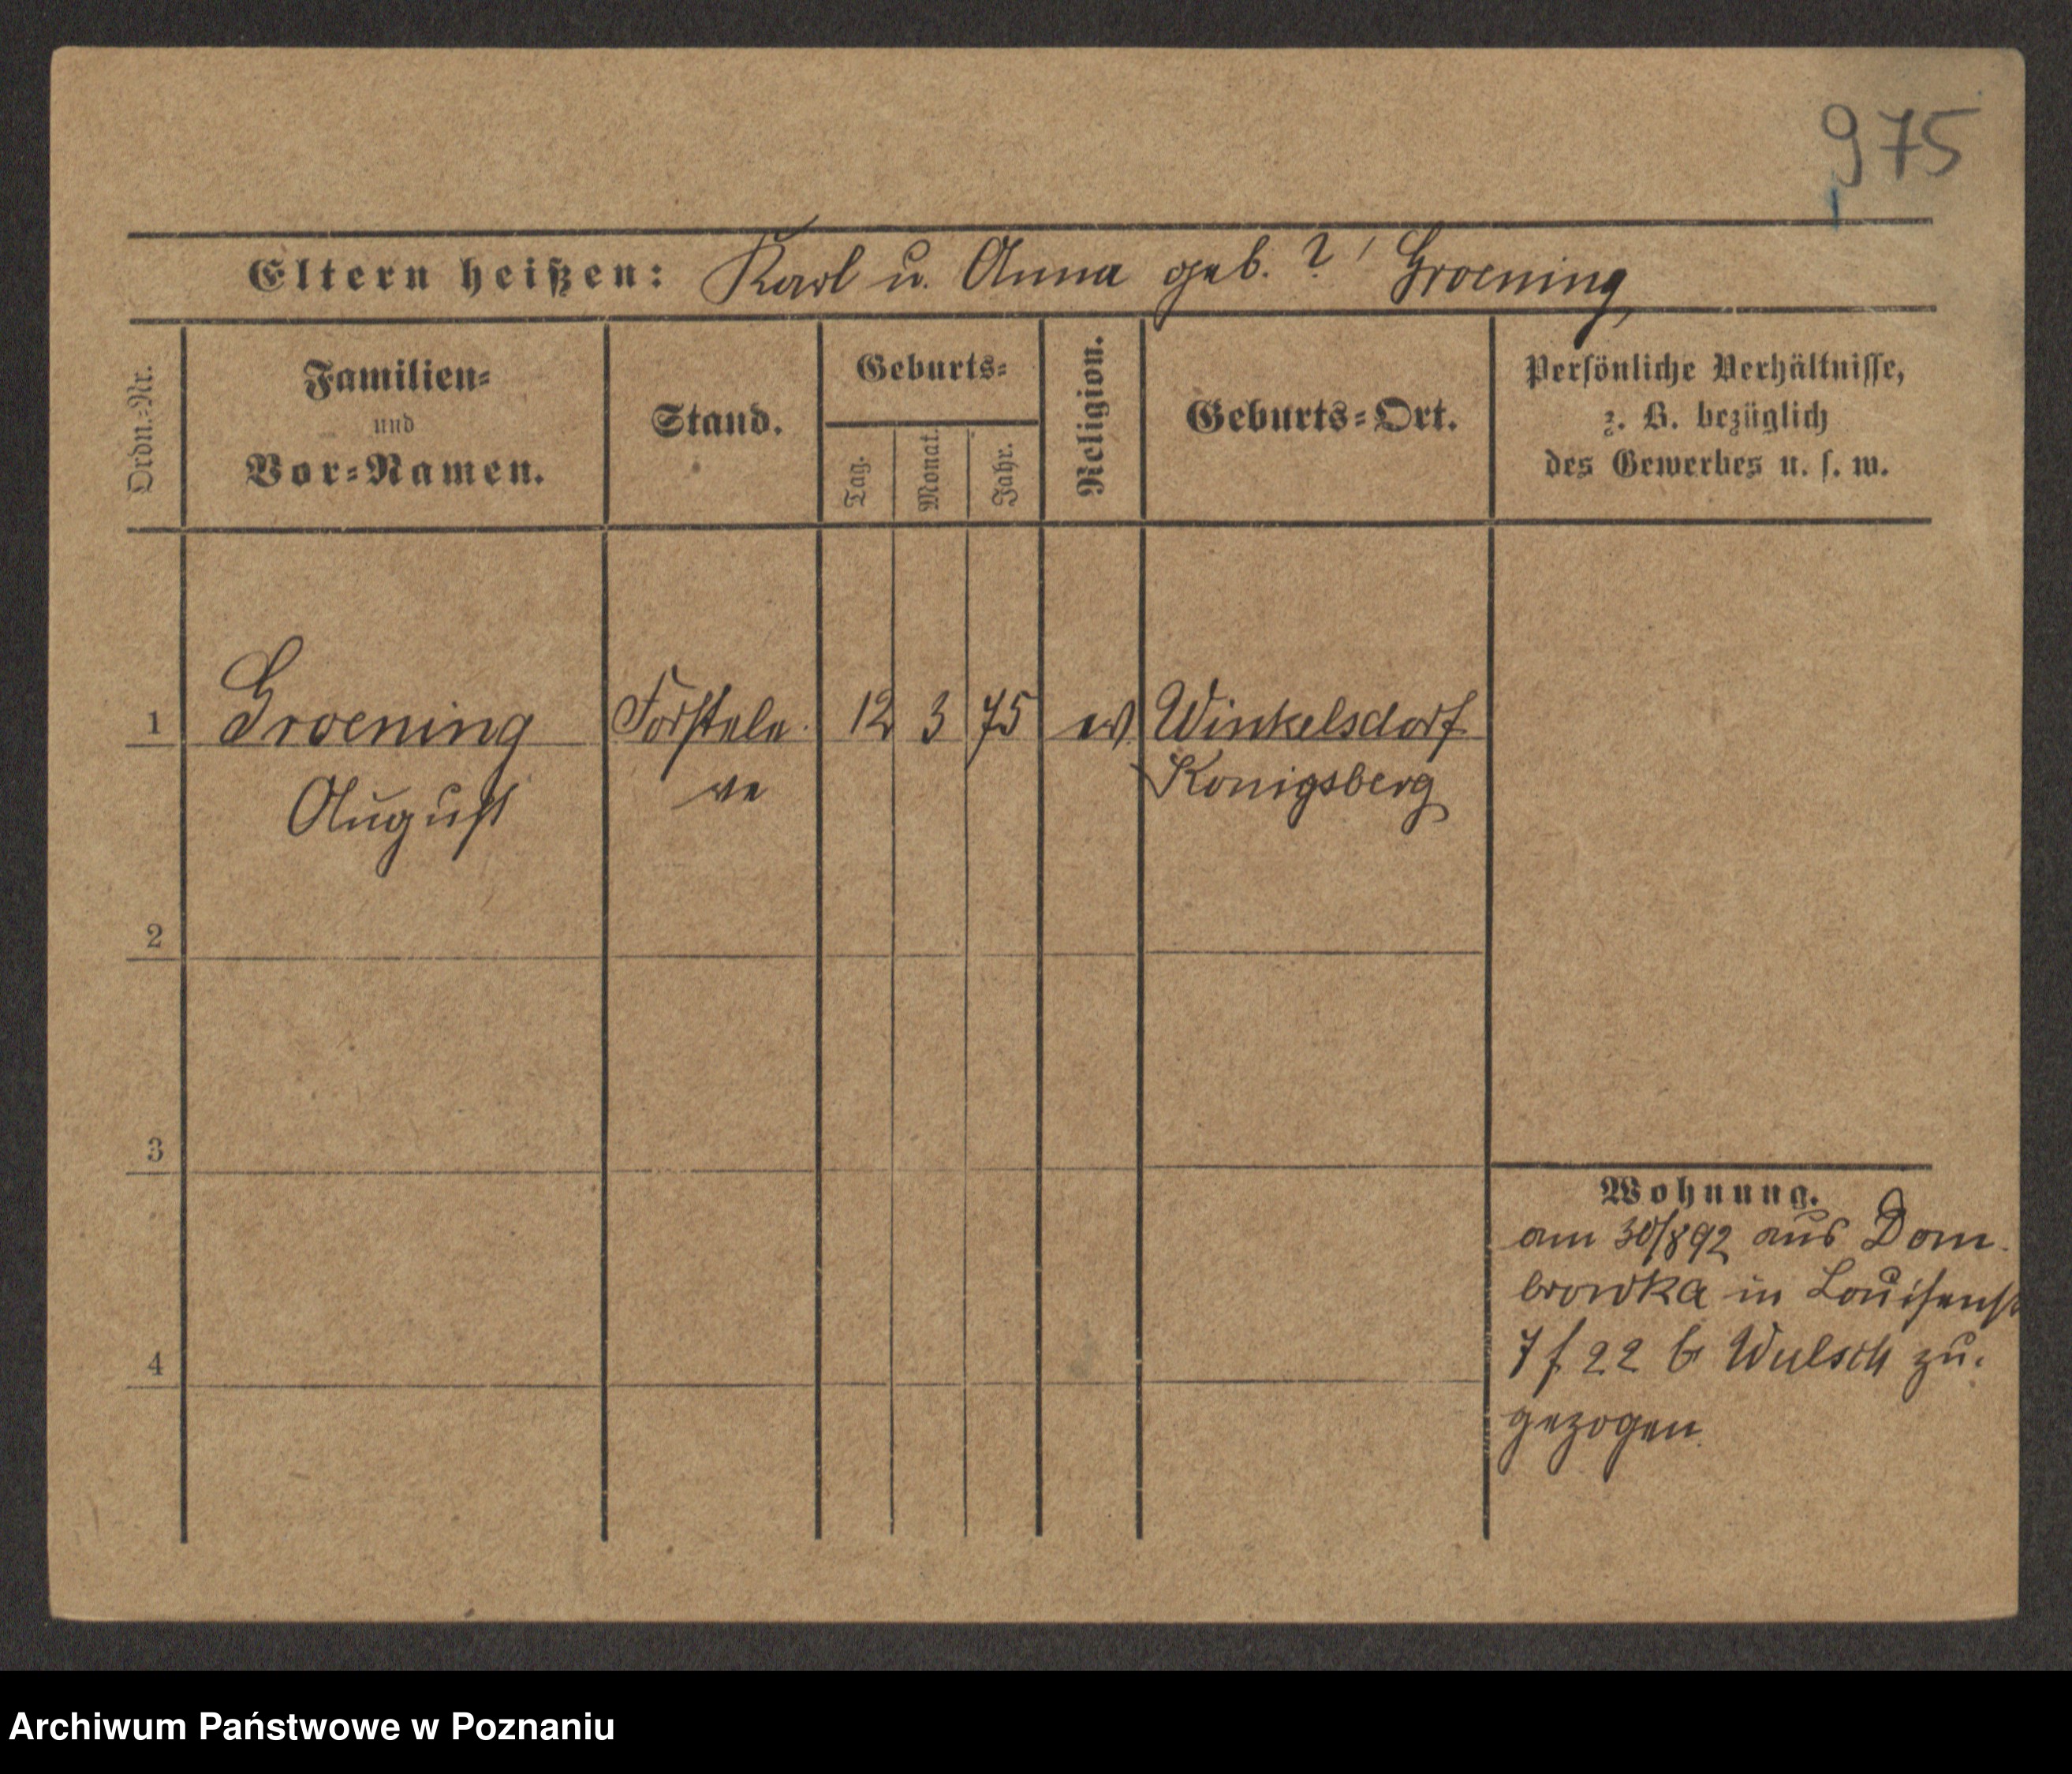 975
Eltern heißen: Karl u. Anna geb. ? Groening
Ordn.=Nr.
Familien=
und
Vor=Namen.
Stand.
Geburts=
Tag.
Monat.
Jahr.
Religion.
Geburts=Ort.
Persönliche Verhältnisse,
z. B. bezüglich
des Gewerbes u. s. w.
1 Groening Forstele 12 3 75 ev. Winkelsdorf
August ve Königsberg
2
3
4
Wohnung.
am 30/8 92 aus Dom-
browka in Louisenst
7 f 22 b Wulsch zu-
gezogen.
Archiwum Państwowe w Poznaniu